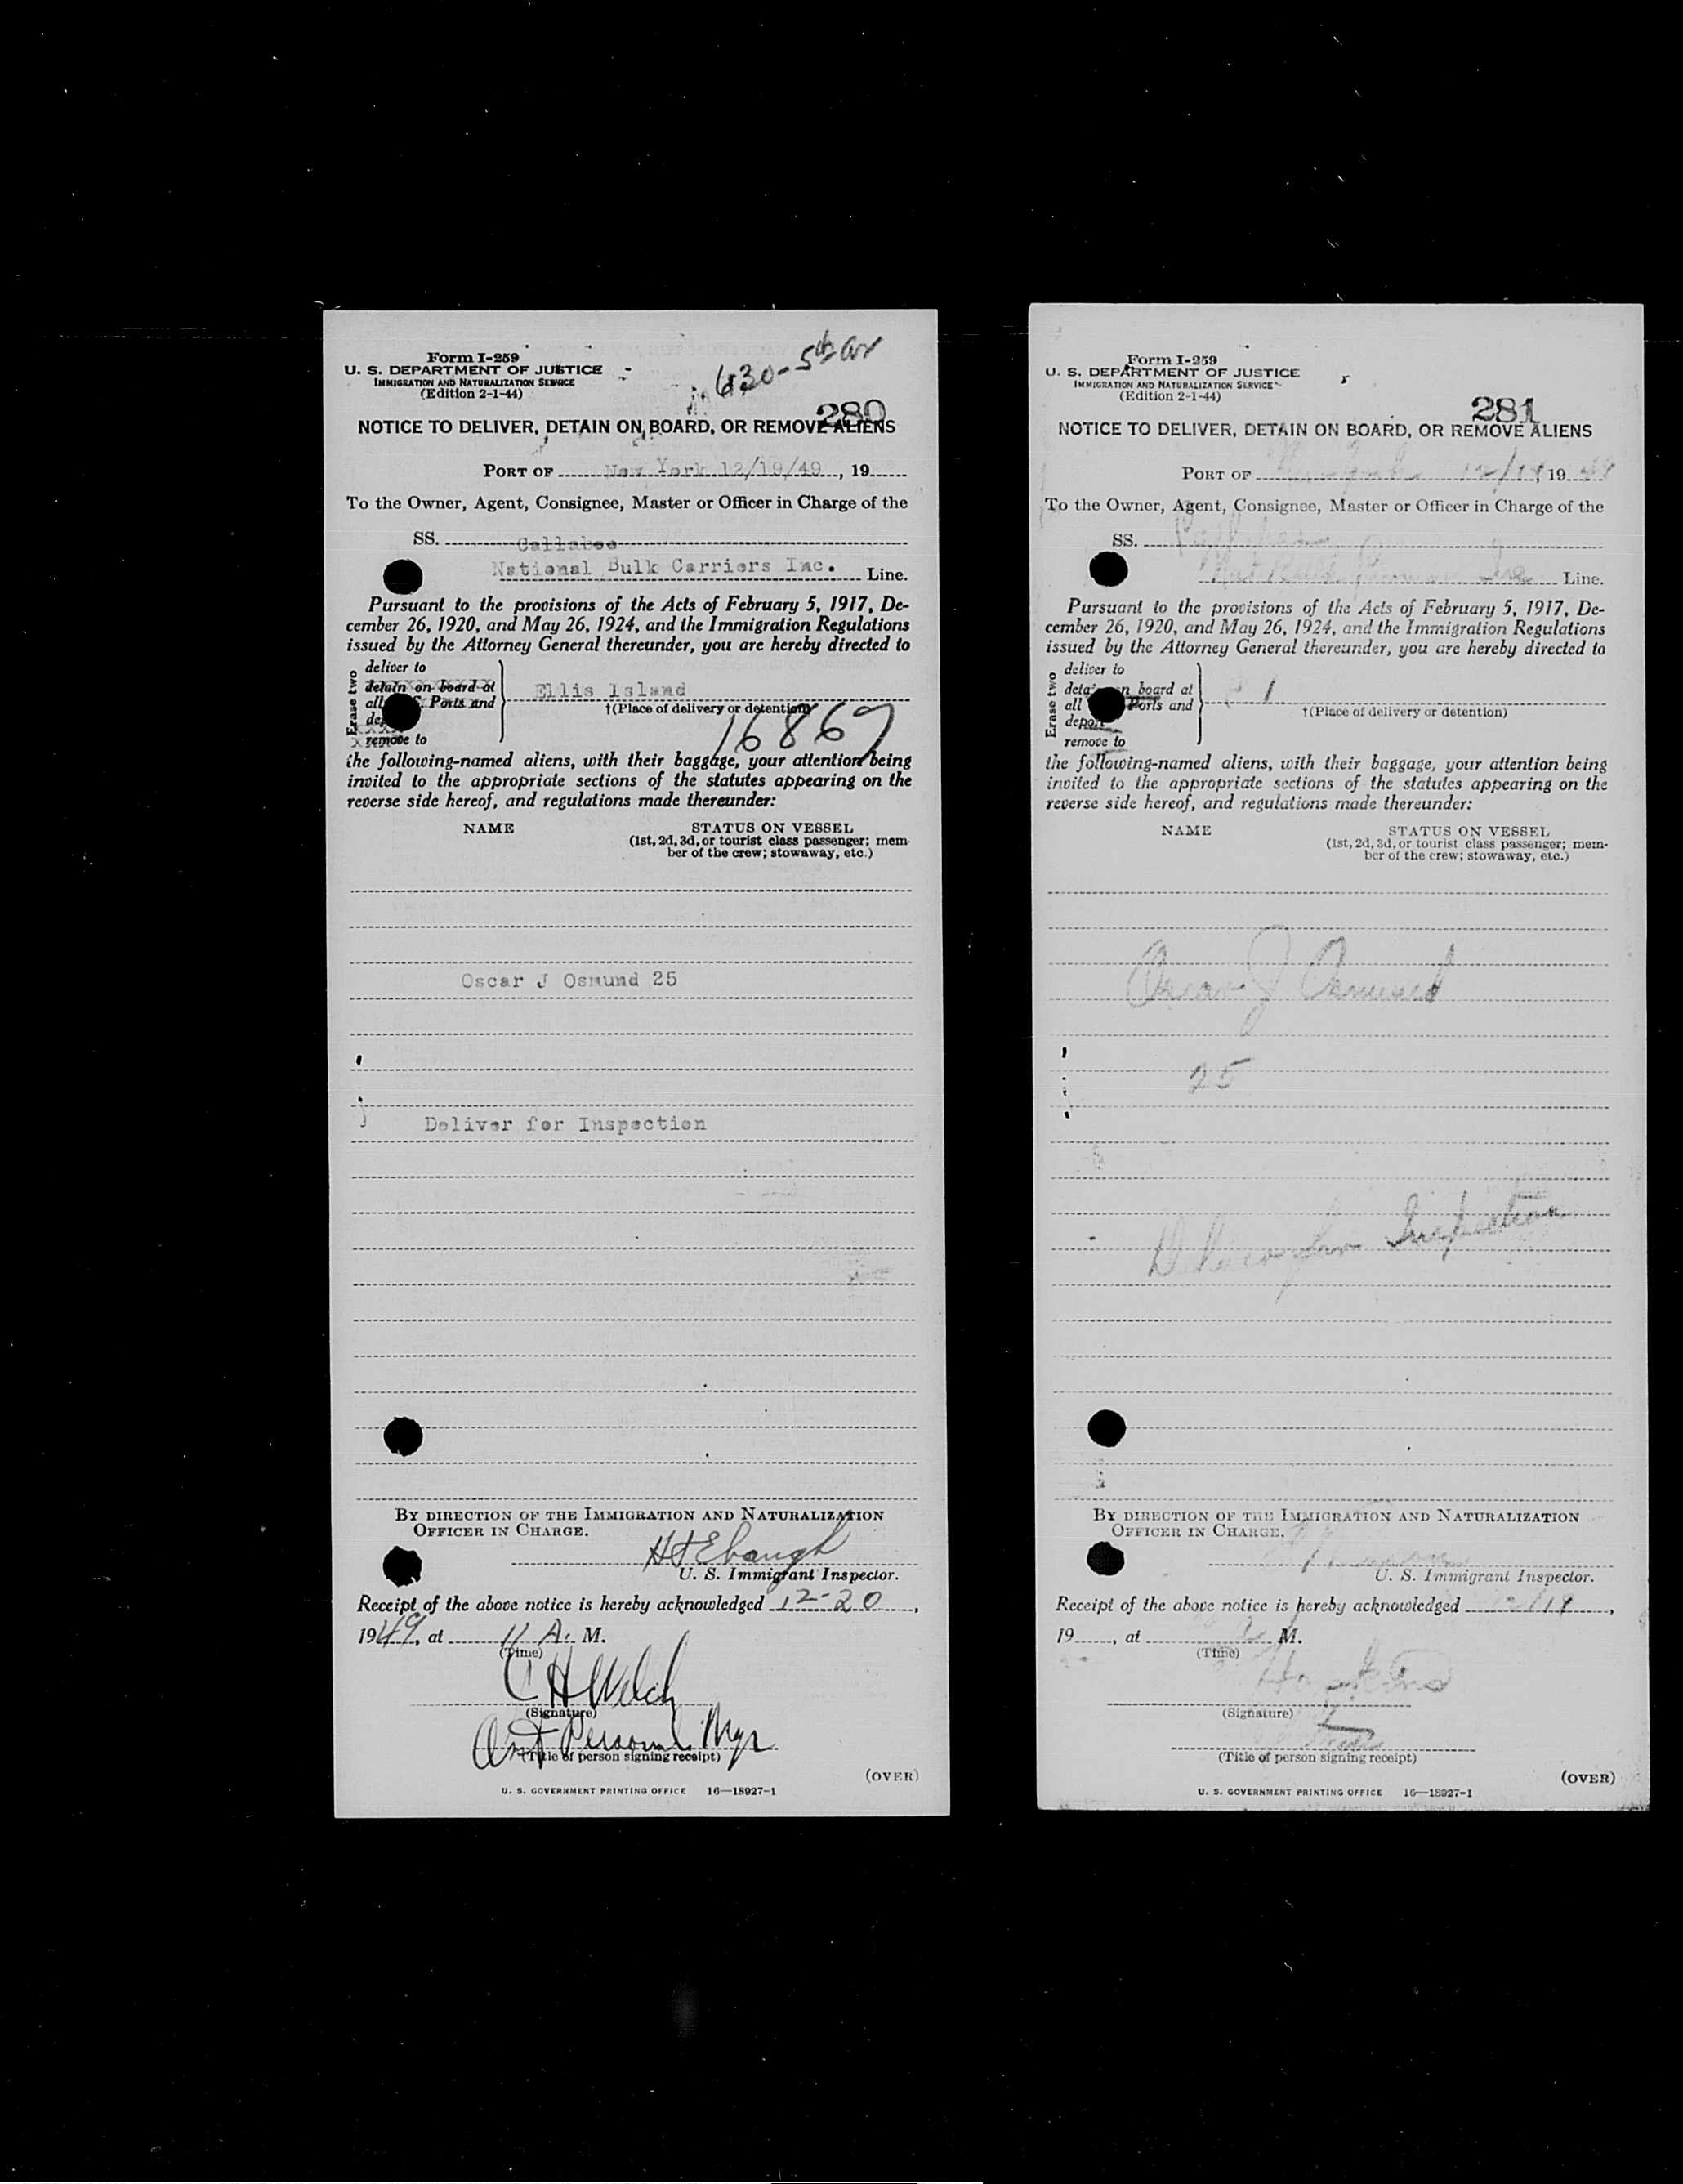 Form I-259
U. S. DEPARTMENT OF JUSTICE
IMMIGRATION AND NATURALIZATION SERVICE
(Edition 2-1-44)
630-5th av
280
NOTICE TO DELIVER, DETAIN ON BOARD, OR REMOVE ALIENS
PORT OF New York 12/19/49, 19
To the Owner, Agent, Consignee, Master or Officer in Charge of the
SS.
National Bulk Carriers Inc. Line.
Pursuant to the provisions of the Acts of February 5, 1917, De-
cember 26, 1920, and May 26, 1924, and the Immigration Regulations
issued by the Attorney General thereunder, you are hereby directed to
Erase two
deliver to
detain on board at
all Ports and
remove to
Ellis Island
†(Place of delivery or detention)
16867
the following-named aliens, with their baggage, your attention being
invited to the appropriate sections of the statutes appearing on the
reverse side hereof, and regulations made thereunder:
NAME STATUS ON VESSEL
(1st, 2d, 3d, or tourist class passenger; mem-
ber of the crew; stowaway, etc.)
Oscar J Osmund 25
Deliver for Inspection
BY DIRECTION OF THE IMMIGRATION AND NATURALIZATION
OFFICER IN CHARGE.
U. S. Immigrant Inspector.
Receipt of the above notice is hereby acknowledged 12-20,
1949, at 11 A. M.
(Time)
C H Welch
(Signature)
Mgr
(Title of person signing receipt)
(OVER)
U. S. GOVERNMENT PRINTING OFFICE 16—18927-1
Form I-259
U. S. DEPARTMENT OF JUSTICE
IMMIGRATION AND NATURALIZATION SERVICE
(Edition 2-1-44)
281
NOTICE TO DELIVER, DETAIN ON BOARD, OR REMOVE ALIENS
PORT OF New York 12/19 19
To the Owner, Agent, Consignee, Master or Officer in Charge of the
SS.
Line.
Pursuant to the provisions of the Acts of February 5, 1917, De-
cember 26, 1920, and May 26, 1924, and the Immigration Regulations
issued by the Attorney General thereunder, you are hereby directed to
Erase two
deliver to
board at
all Ports and
deport
remove to
†(Place of delivery or detention)
the following-named aliens, with their baggage, your attention being
invited to the appropriate sections of the statutes appearing on the
reverse side hereof, and regulations made thereunder:
NAME STATUS ON VESSEL
(1st, 2d, 3d, or tourist class passenger; mem-
ber of the crew; stowaway, etc.)
Oscar J Osmund
25
Deliver for Inspection
BY DIRECTION OF THE IMMIGRATION AND NATURALIZATION
OFFICER IN CHARGE.
U. S. Immigrant Inspector.
Receipt of the above notice is hereby acknowledged 12/19,
19, at M.
(Time)
(Signature)
(Title of person signing receipt)
(OVER)
U. S. GOVERNMENT PRINTING OFFICE 16—18927-1